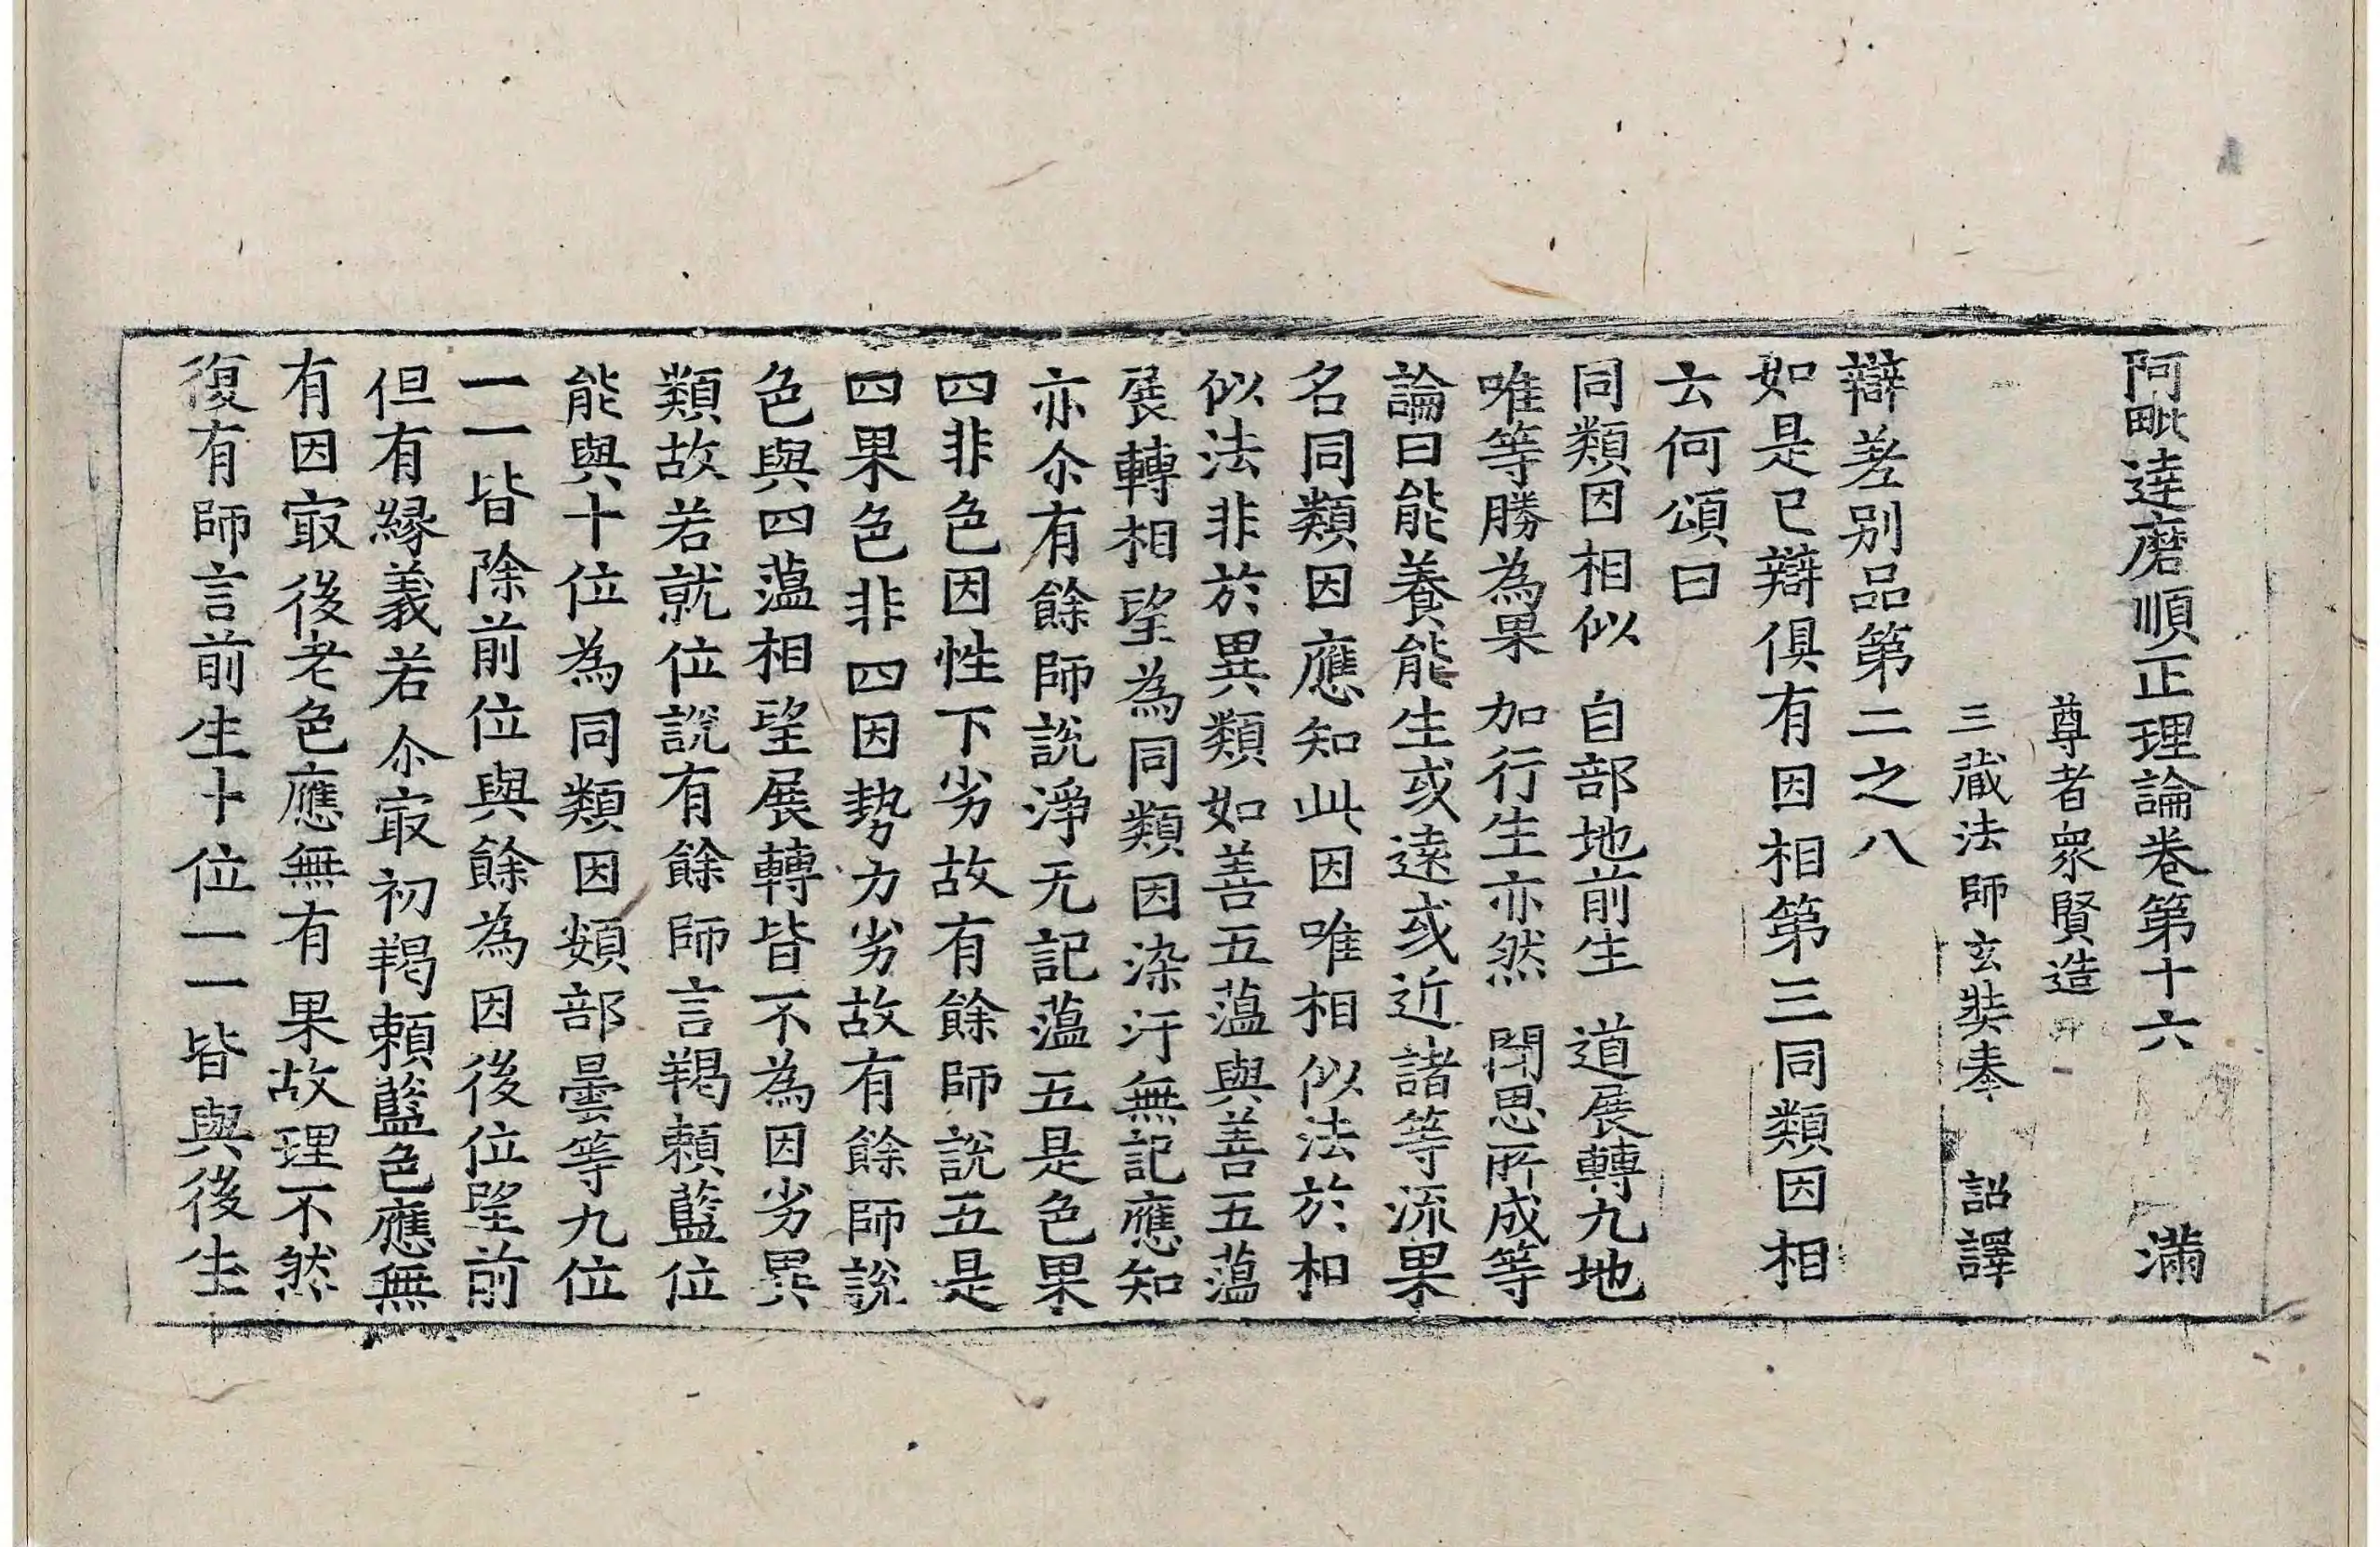 阿毗達磨順正理論卷第十六　滿
尊者衆賢造
三藏法師玄奘奉　詔譯
辯差別品第二之八
如是已辯俱有因相第三同類因相
云何頌曰
同類因相似　自部地前生　道展轉九地
唯等勝為果　加行生亦然　聞思所成等
論曰能養能生或遠或近諸等流果
名同類因應知此因唯相似法於相
似法非於異類如善五蕰與善五蕰
展轉相望為同類因染汙無記應知
亦尒有餘師說淨无記蕰五是色果
四非色因性下劣故有餘師說五是
四果色非四因勢力劣故有餘師說
色與四蕰相望展轉皆不為因劣異
類故若就位說有餘師言羯賴藍位
能與十位為同類因頞部曇等九位
一一皆除前位與餘為因後位望前
但有緣義若尒㝡初羯賴藍色應無
有因㝡後老色應無有果故理不然
復有師言前生十位一一皆與後生